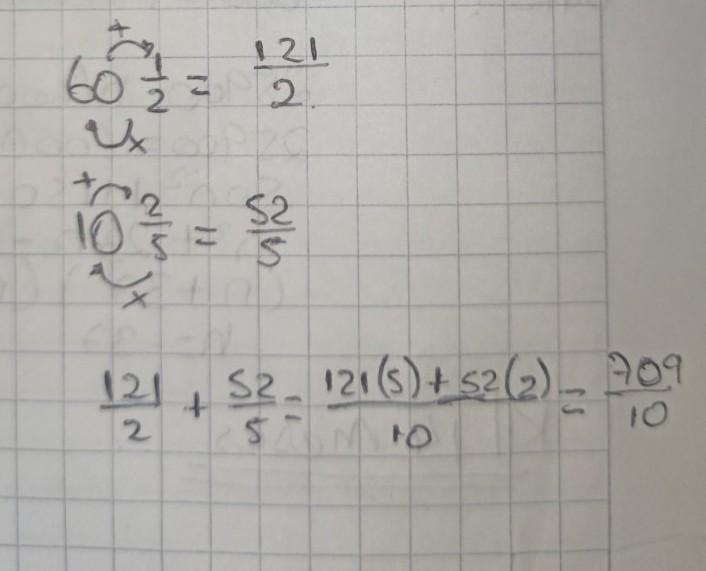 +
60 1/2 = 121/2.
x
+
10 2/5 = 52/5
x
121/2 + 52/5 = 121(5) + 52(2)/10 = 709/10